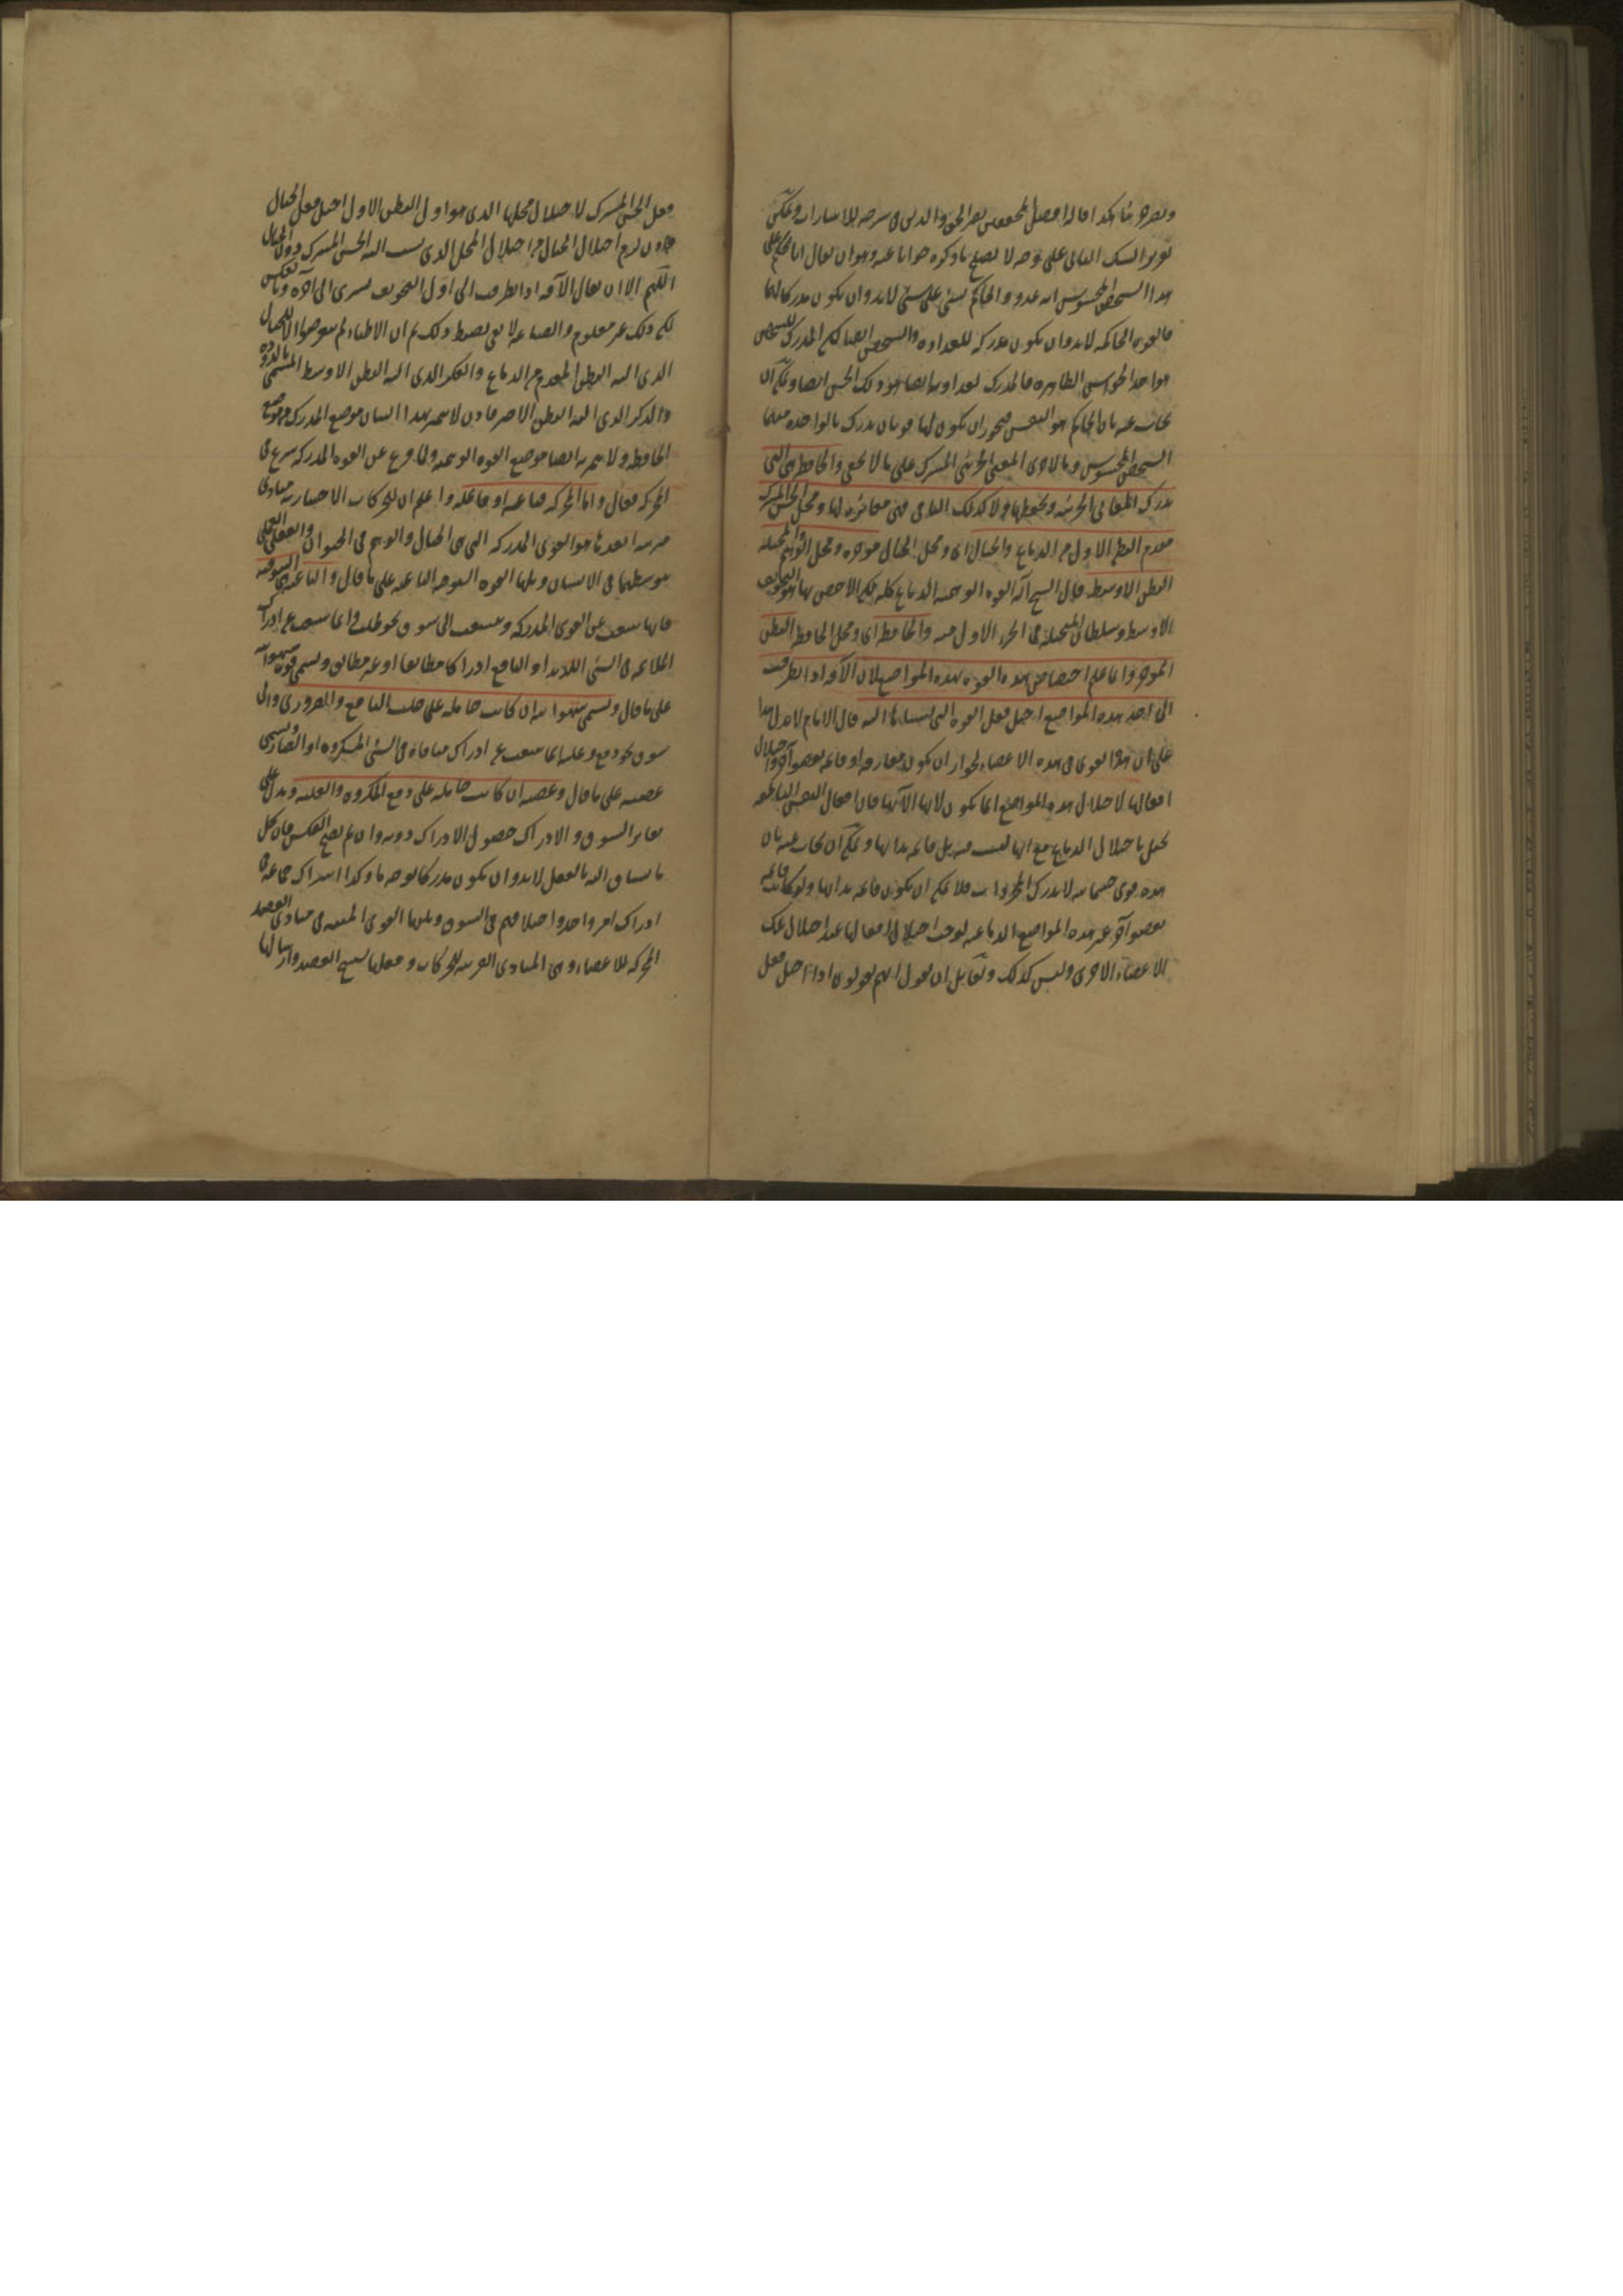 وبصره مثا هكذا قاله افضل المحققين نصير الحق والدين في شرحه للاشارات ويمكن
تقرير الشك الثاني على وجه لا يصلح ما ذكره جوابا عنه وهو ان يقال انا نحكم على
هذا الشخص المحسوس انه عدو والحاكم بشئ على شئ لا بد وان يكون مدركا لهما
فالقوة الحاكمة لا بد وان يكون مدركة للعداوة والشخص ايضا لكن المدرك للشخص
هو احد الحواس الظاهرة فالمدرك لعداوتها ايضا هو ذلك الحس ايضا ويمكن ان
يجاب عنه بان الحاكم هو النفس فيجوز ان يكون لها قوتان يدرك بالواحدة منهما
الشخص المحسوس وبالاخرى المعنى الجزئي المدرك على ما لا يخفى والحافظة هي التي
يدرك المعاني الجزئية ويحفظها ولا كذلك الباقي فهي مغايرة لها ومحل الحس المشترك
مقدم البطن الاول من الدماغ والخيال اى ومحل الخيال موخره ومحل الوهم المتخيلة
البطن الاوسط قال الشيخ آلة القوة الوهمية الدماغ كله لكن الاخص بها هو التجويف
الاوسط وسلطان المتخيلة في الجزء الاول منه والحافظة اى ومحل الحافظة البطن
الموخر وانما علم اختصاص هذه القوة بهذه المواضع لان الآفة اذا تطرقت
الى احد هذه المواضع اختل فعل القوة التي نسبناها اليه قال الامام لا يدل هذا
على ان هذه القوى في هذه الاعضاء لجواز ان يكون مفارقة او قائمة بعضو آخر واختلال
افعالها لاختلال هذه المواضع انما يكون لانها آلاتها فان افعال النفس الناطقة
تختل باختلال الدماغ مع انها ليست فيه بل قائمة بذاتها ويمكن ان يجاب عنه بان
هذه قوى جسمانية لا تدرك المجردات فلا يمكن ان يكون قائمة بذاتها ولو كانت قائمة
بعضو آخر غير هذه المواضع الدماغية لوجب اختلال افعالها عند اختلال تلك
الاعضاء الاخرى وليس كذلك ولقائل ان يقول انهم يقولون اذا اختل فعل
فعل الحس المشترك لاختلال محلها الذي هو اول البطن الاول اختل فعل الخيال
فاذن لزم اختلال الخيال من اختلال المحل الذي نسب اليه الحس المشترك دون الخيال
اللهم الا ان يقال الآفة اذا تطرقت الى اول التجويف تسرى الى آخره وبالعكس
لكن ذلك غير معلوم والصناعة لا تفي بضبط ذلك ثم ان الاطباء لم يتعرضوا الا للخيال
الذي آلته البطن المقدم من الدماغ والفكر الذي آلته البطن الاوسط المسمى بالدودة
والذكر الذي آلته البطن الاخير فاذن لا يتميز بهذا البيان موضع المدرك من موضع
الحافظ ولا يتميز به ايضا موضع القوة الوهمية ولما فرغ عن القوة المدركة شرع في
المحركة فقال واما المحركة فباعثة او فاعلة واعلم ان للحركات الاختيارية مبادى
مترتبة ابعدها هو القوى المدركة التي هي الخيال والوهم في الحيوان والعقل العملي
بتوسطهما في الانسان ويليها القوة الشوقية الباعثة على ما قال والباعثة هي الشوقية
فانها تنبعث عن القوى المدركة وتتشعب الى شوق نحو طلب انما تنبعث عن ادراك
الملائمة في الشئ اللذيذ او النافع ادراكا مطابقا او غير مطابق وتسمى قوة شهوانية
على ما قال وتسمى شهوانية ان كانت حاملة على جلب النافع والضروري والى
شوق نحو دفع وغلبة انما تنبعث عن ادراك منافاة في الشئ المكروه او الضار وتسمى
غضبية على ما قال وغضبية ان كانت حاملة على دفع المكروه والغلبة ويدل على
تغاير الشوق والادراك حصول الادراك دونه وان لم يصح العكس فان كل
ما يشتاق اليه بالفعل لا بد وان يكون مدركا بوجه ما وكذا اشتراك جماعة في
ادراك امر واحد واختلافهم في الشوق ويليها القوى المنبثة في مبادى العضل
المحركة للاعضاء وهي المبادى القريبة للحركات وفعلها تشنيج العضل وارسالها